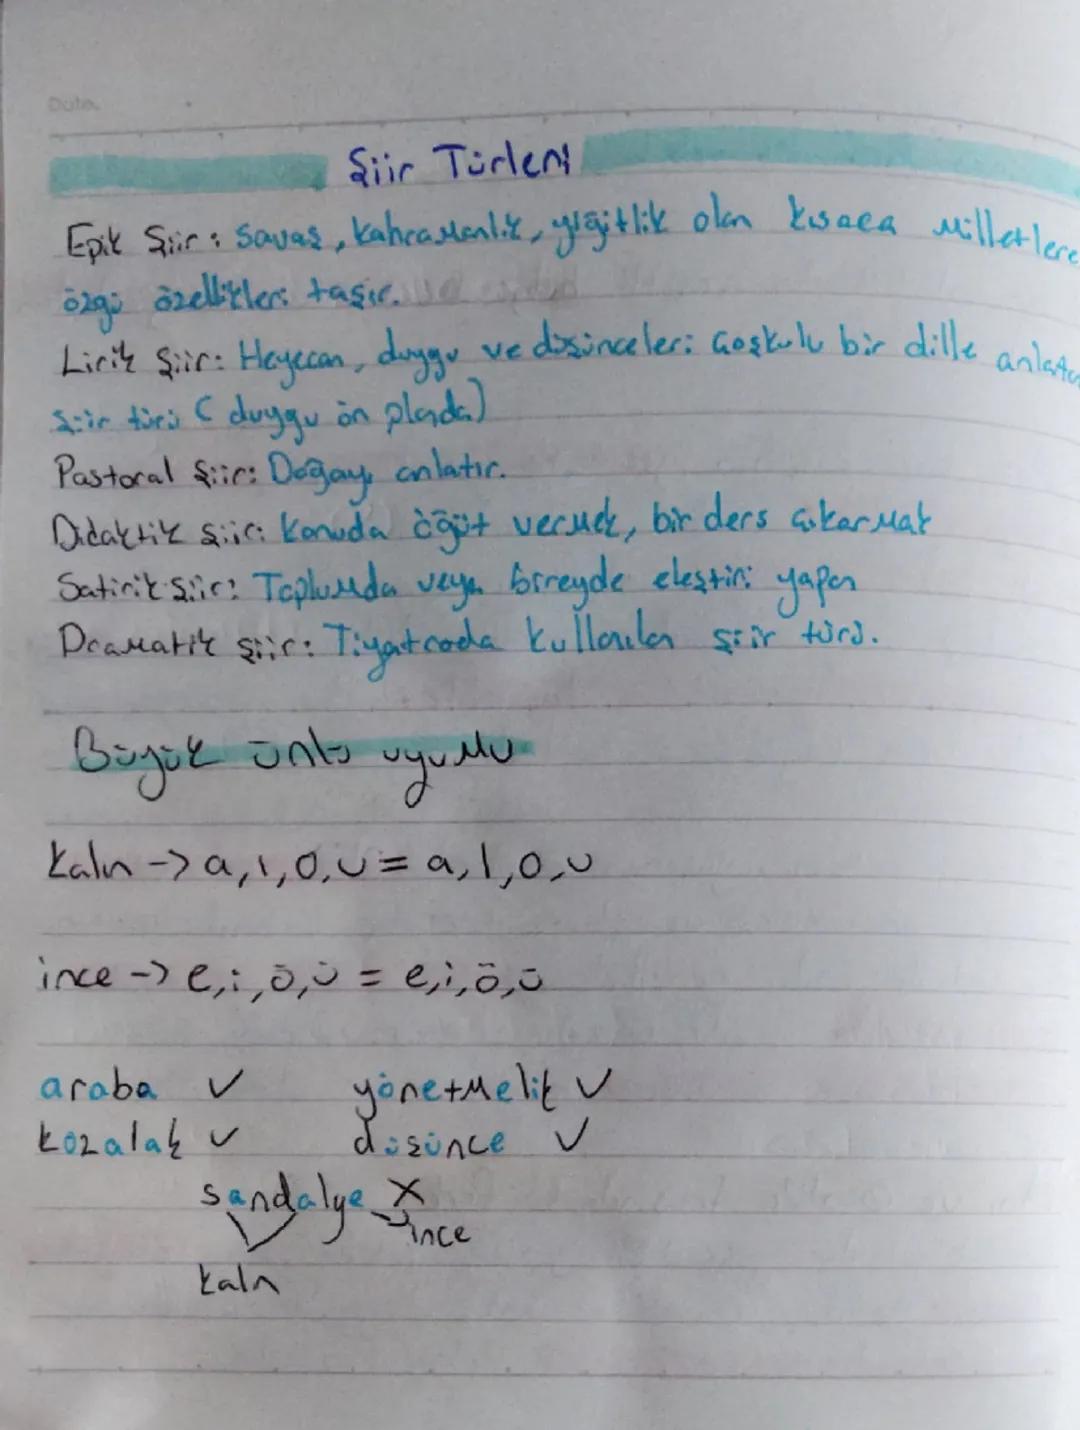 Date.
Şiir Türleri
Epik Şiir: Savaş, kahramanlık, yiğitlik olan kısaca milletlere
özgü özellikleri taşır.
Lirik Şiir: Heyecan, duygu ve düşünceleri coşkulu bir dille anlatan
şiir türü (duygu ön planda)
Pastoral Şiir: Doğayı anlatır.
Didaktik şiir: Konuda öğüt vermek, bir ders çıkarmak
Satirik şiir: Toplumda veya bireyde eleştiri yapan
Dramatik şiir: Tiyatroda kullanılan şiir türü.
Büyük ünlü uyumu
kalın -> a, ı, o, u = a, ı, o, u
ince -> e, i, ö, ü = e, i, ö, ü
araba ✓ yönetmelik ✓
kozalak ✓ düşünce ✓
sandalye X
ince
kalın